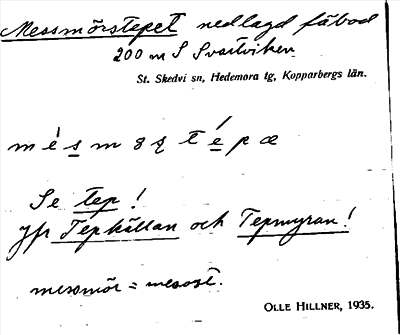 Messmörstepet nedlagd fäbod
200 m S Svartviken
St. Skedvi sn, Hedemora tg, Kopparbergs län.
Se tep!
jfr Tepkällan och Tepmyran!
messmör = mesost.
OLLE HILLNER, 1935.